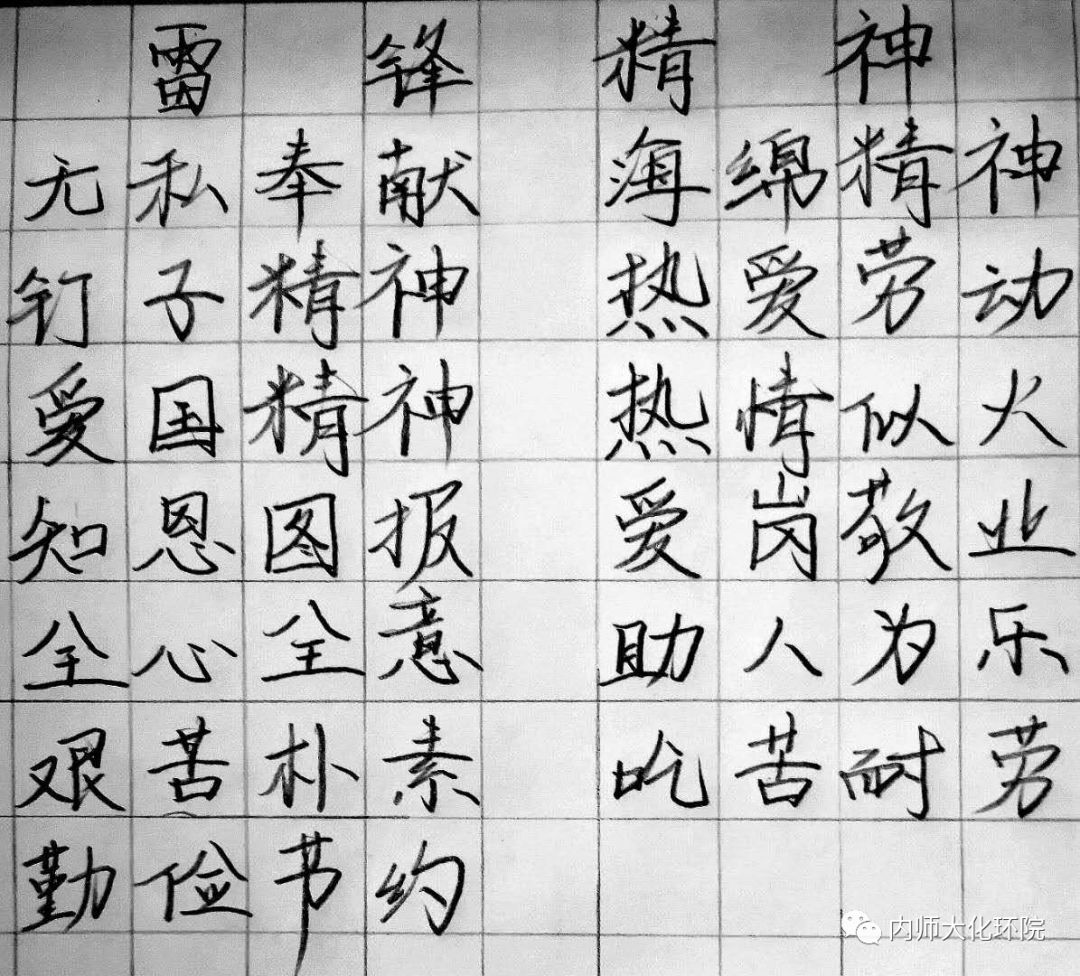 雷锋精神
无私奉献 海绵精神
钉子精神 热爱劳动
爱国精神 热情似火
知恩图报 爱岗敬业
全心全意 助人为乐
艰苦朴素 吃苦耐劳
勤俭节约
内师大化环院